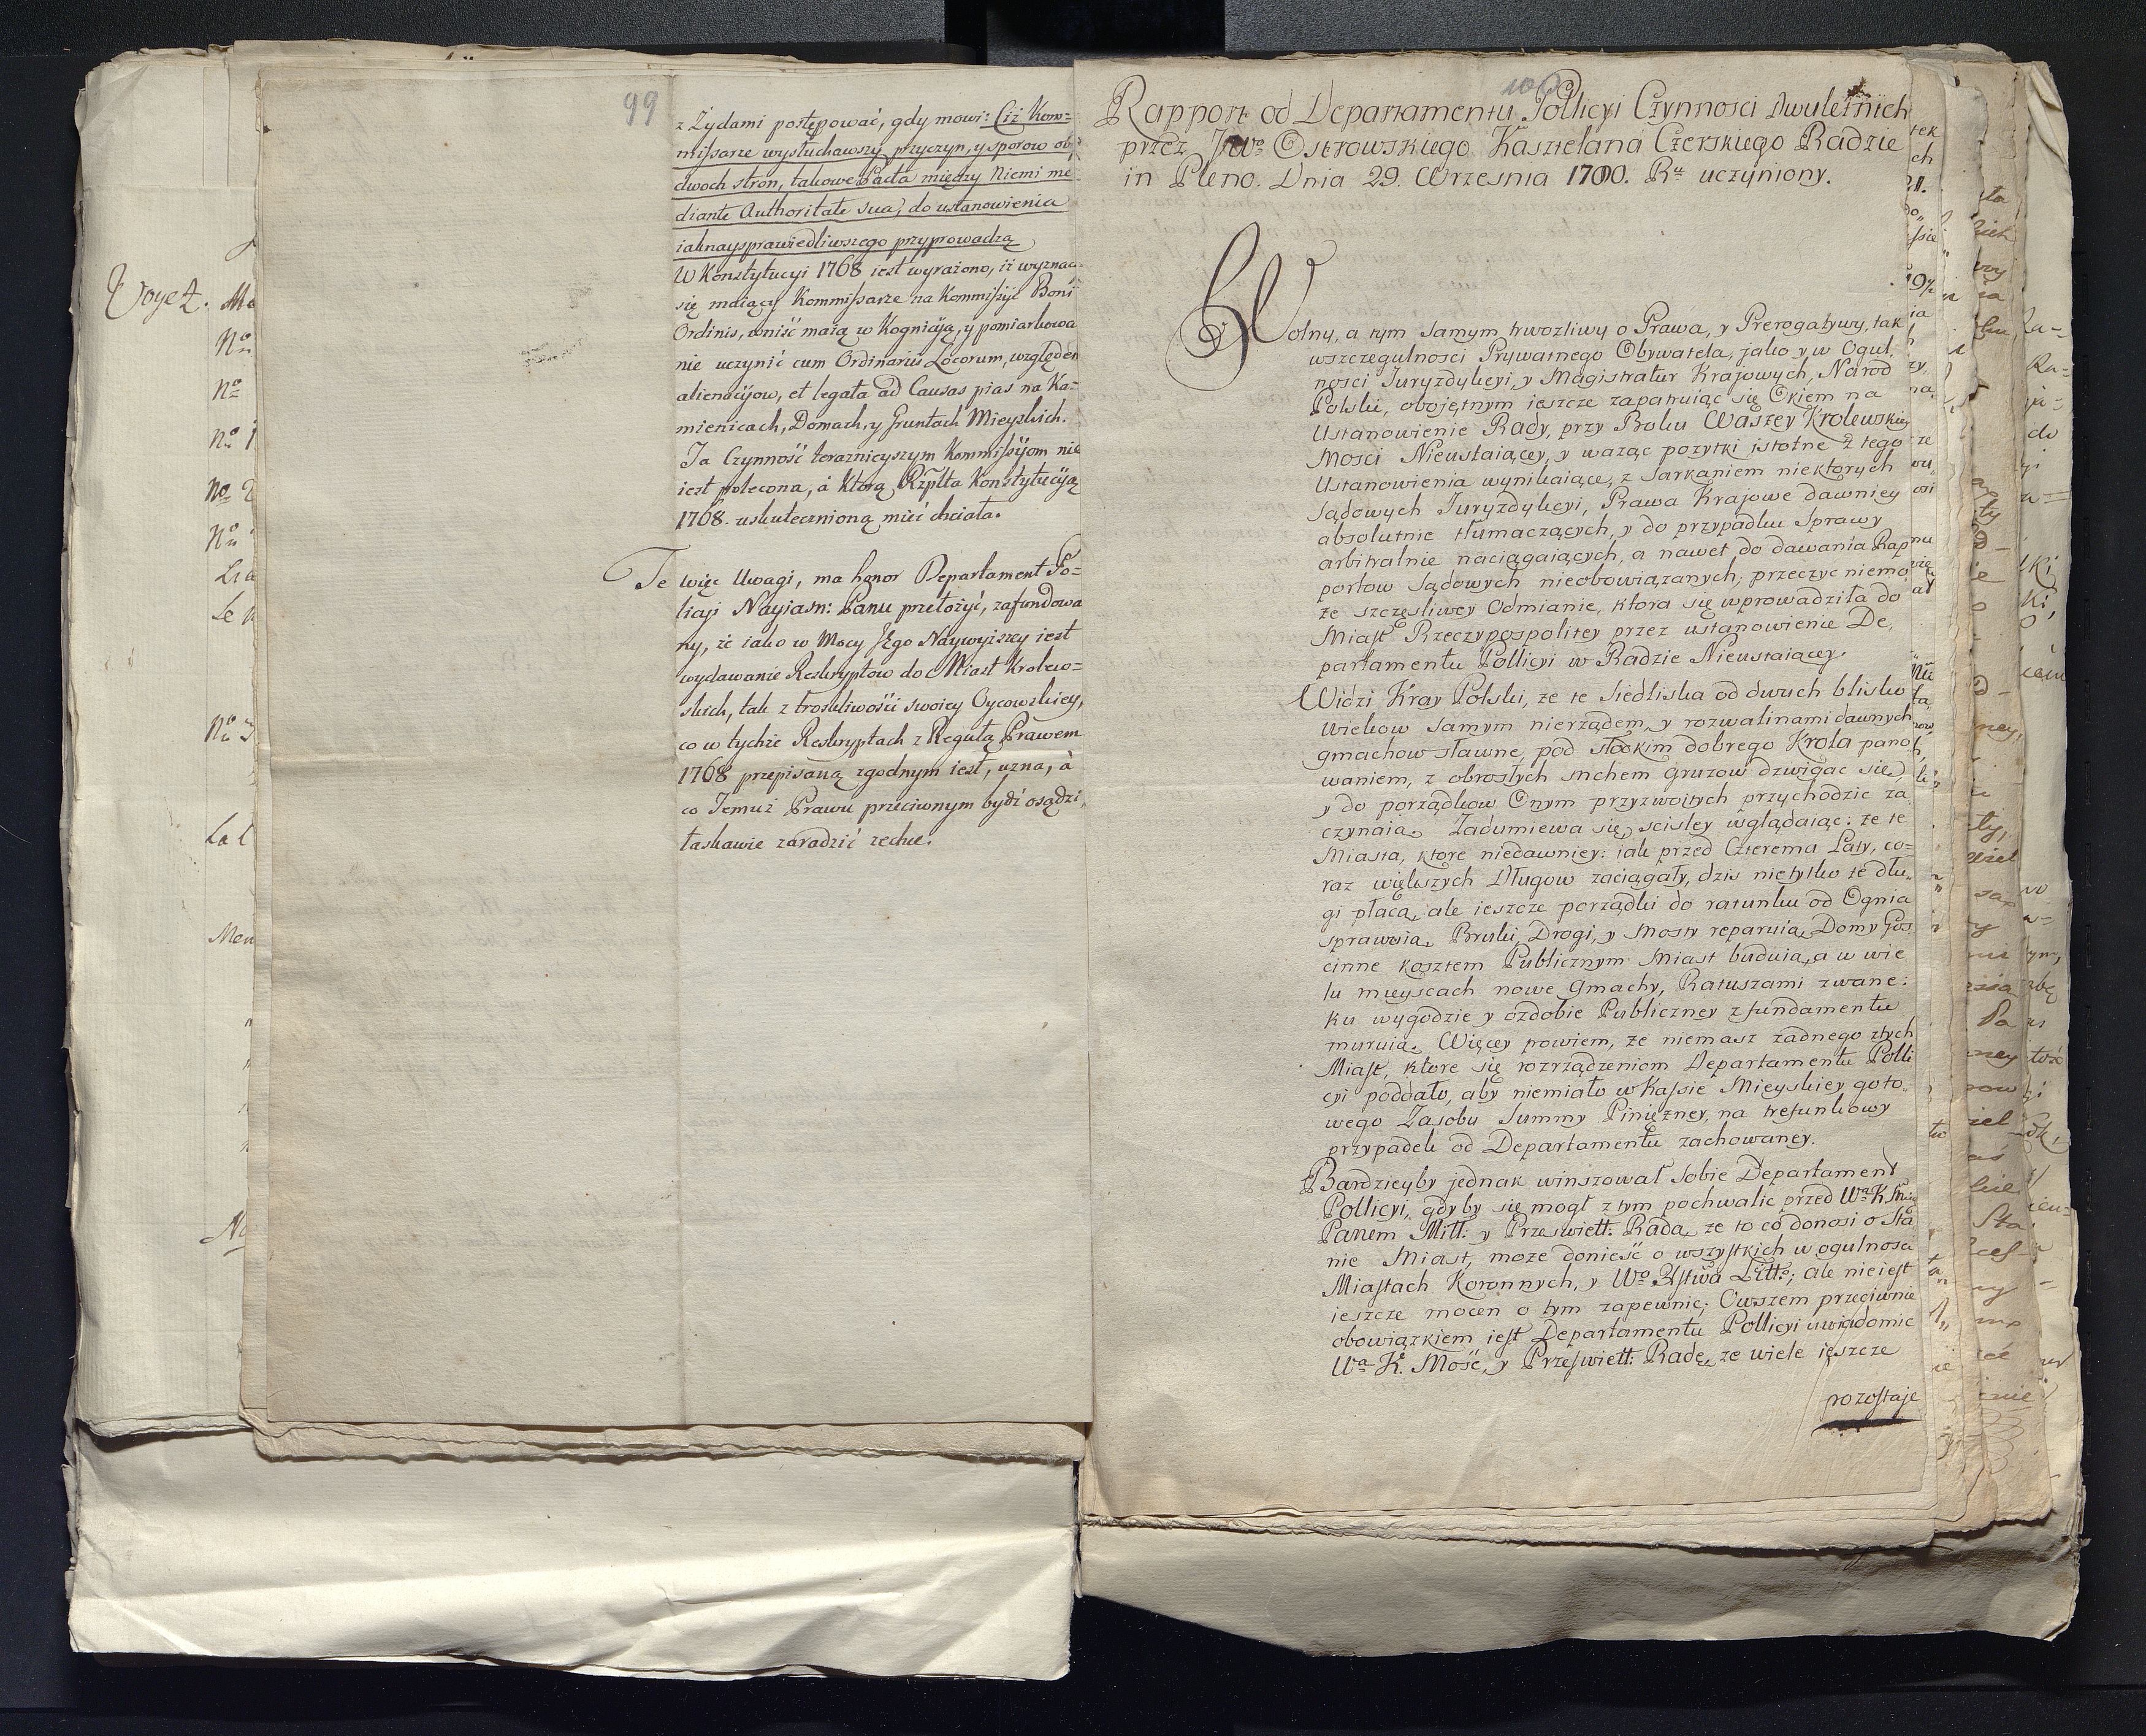 99
z Żydami postępować, gdy mowi: Ciż Kom=
missarze wysłuchawszy przyczyn, y sporow ob
dwoch stron, takowe Pacta między Niemi me
diante Authoritate sua, do ustanowienia
iaknaysprawiedliwszego przyprowadzą
W Konstytucyi 1768 iest wyrażono, iż wyznac
się maiący Kommissarze na Kommissyie Boni
Ordinis, wniść maią w Kognicyią, y pomiarkowa
nie uczynić cum Ordinariis Locorum, względem
alienacyiow, et legata ad Causas pias na Ka=
mienicach, Domach, y Gruntach Mieyskich.
Ta Czynność teraznieyszym Kommissyiom nie
iest polecona, á którą Rzplta Konstytucyią
1768. uskutecznioną mieć chciała.
Te więc Uwagi, ma honor Departament Po=
licyi Nayiasn: Panu przełożyć, zafundowa
ny, że iako w Mocy JEgo Naywyższey iest
wydawanie Reskryptow do Miast Krolew=
skich, tak z troskliwości swoiey Oycowskiey,
co w tychże Reskryptach z Regułą Prawem
1768 przepisaną zgodnym iest, uzna, á
co Temuż Prawu przeciwnym bydź osądzi,
łaskawie zaradzić zechce.
Voyez. Me
No
No
No 1
No 2
No
Le
No 3
La l
100
Rapport od Departamentu Pollicyi Czynnosci dwuletnich
przez JWo Ostrowskiego Kasztelana Czerskiego Radzie
in Pleno. Dnia 29. Wrzesnia 1780. Ru uczyniony.
Wolny, a tym samym trwozliwy o Prawa, y Prerogatywy, tak
wszczegulnosci Prywatnego Obywatela, jako y w Ogul
nosci Juryzdykcyi, y Magistratur Krajowych, Narod
Polski, obojętnym ieszcze zapatruiąc się Okiem na
Ustanowienie Rady, przy Boku Waszey Krolewskiey
Mosci Nieustaiącey, y ważąc pozytki istotne z tego
Ustanowienia wynikaiące, z sarkaniem niektorych
Sądowych Juryzdykcyi, Prawa Krajowe dawniey
absolutnie tłumaczących, y do przypadku Sprawy
arbitralnie naciągaiących, a nawet do dawania Rap
portow Sądowych nieobowiązanych; przeczyc niemo
że szczęsliwey Odmianie, ktora się wprowadziła do
Miast Rzeczypospolitey przez ustanowienie De
partamentu Pollicyi w Radzie Nieustaiącey.
Widzi Kray Polski, że te Siedliska od dwuch blisko
Wiekow samym nierządem, y rozwalinami dawnych
gmachow sławne, pod słodkim dobrego Krola pano
waniem, z obrosłych mchem gruzow dzwigac się,
y do porządkow Onym przyzwoitych przychodzic za
czynaią. Zadumiewa się, scisley wglądaiąc: że te
Miasta, ktore niedawniey: iak przed Czterema Laty, co=
raz większych Długow zaciągały, dzis nietylko te dłu„
gi płacą, ale ieszcze porządki do ratunku od Ognia
sprawuią, Bruki, Drogi, y Mosty reparuią, Domy Gos
cinne kosztem Publicznym Miast buduią, a w wie
lu mieyscach nowe Gmachy, Ratuszami zwane:
ku wygodzie y ozdobie Publiczney z fundamentu
muruią. Więcey powiem, że niemasz zadnego ztych
Miast, ktore się rozrządzeniom Departamentu Polli
cyi poddało, aby niemiało w Kassie Mieyskiey goto„
wego Zasobu Summy Pinięzney, na trefunkowy
przypadek od Departamentu zachowaney.
Bardzieyby jednak winszował sobie Departament
Pollicyi, gdyby się mogł z tym pochwalic przed Wa K Mcią
Panem Mitt: y Przeswiett: Radą, ze to co donosi o Sta
nie Miast, moze donieść o wszystkich w ogulnosci
Miastach Koronnych, y Wo Xstwa Litto; ale nieiest
ieszcze mocen o tym zapewnic; Owszem przeciwnie
obowiązkiem iest Departamentu Pollicyi uwiadomic
Wa K. Mość, y Przeswiett: Radę, ze wiele ieszcze
pozostaje